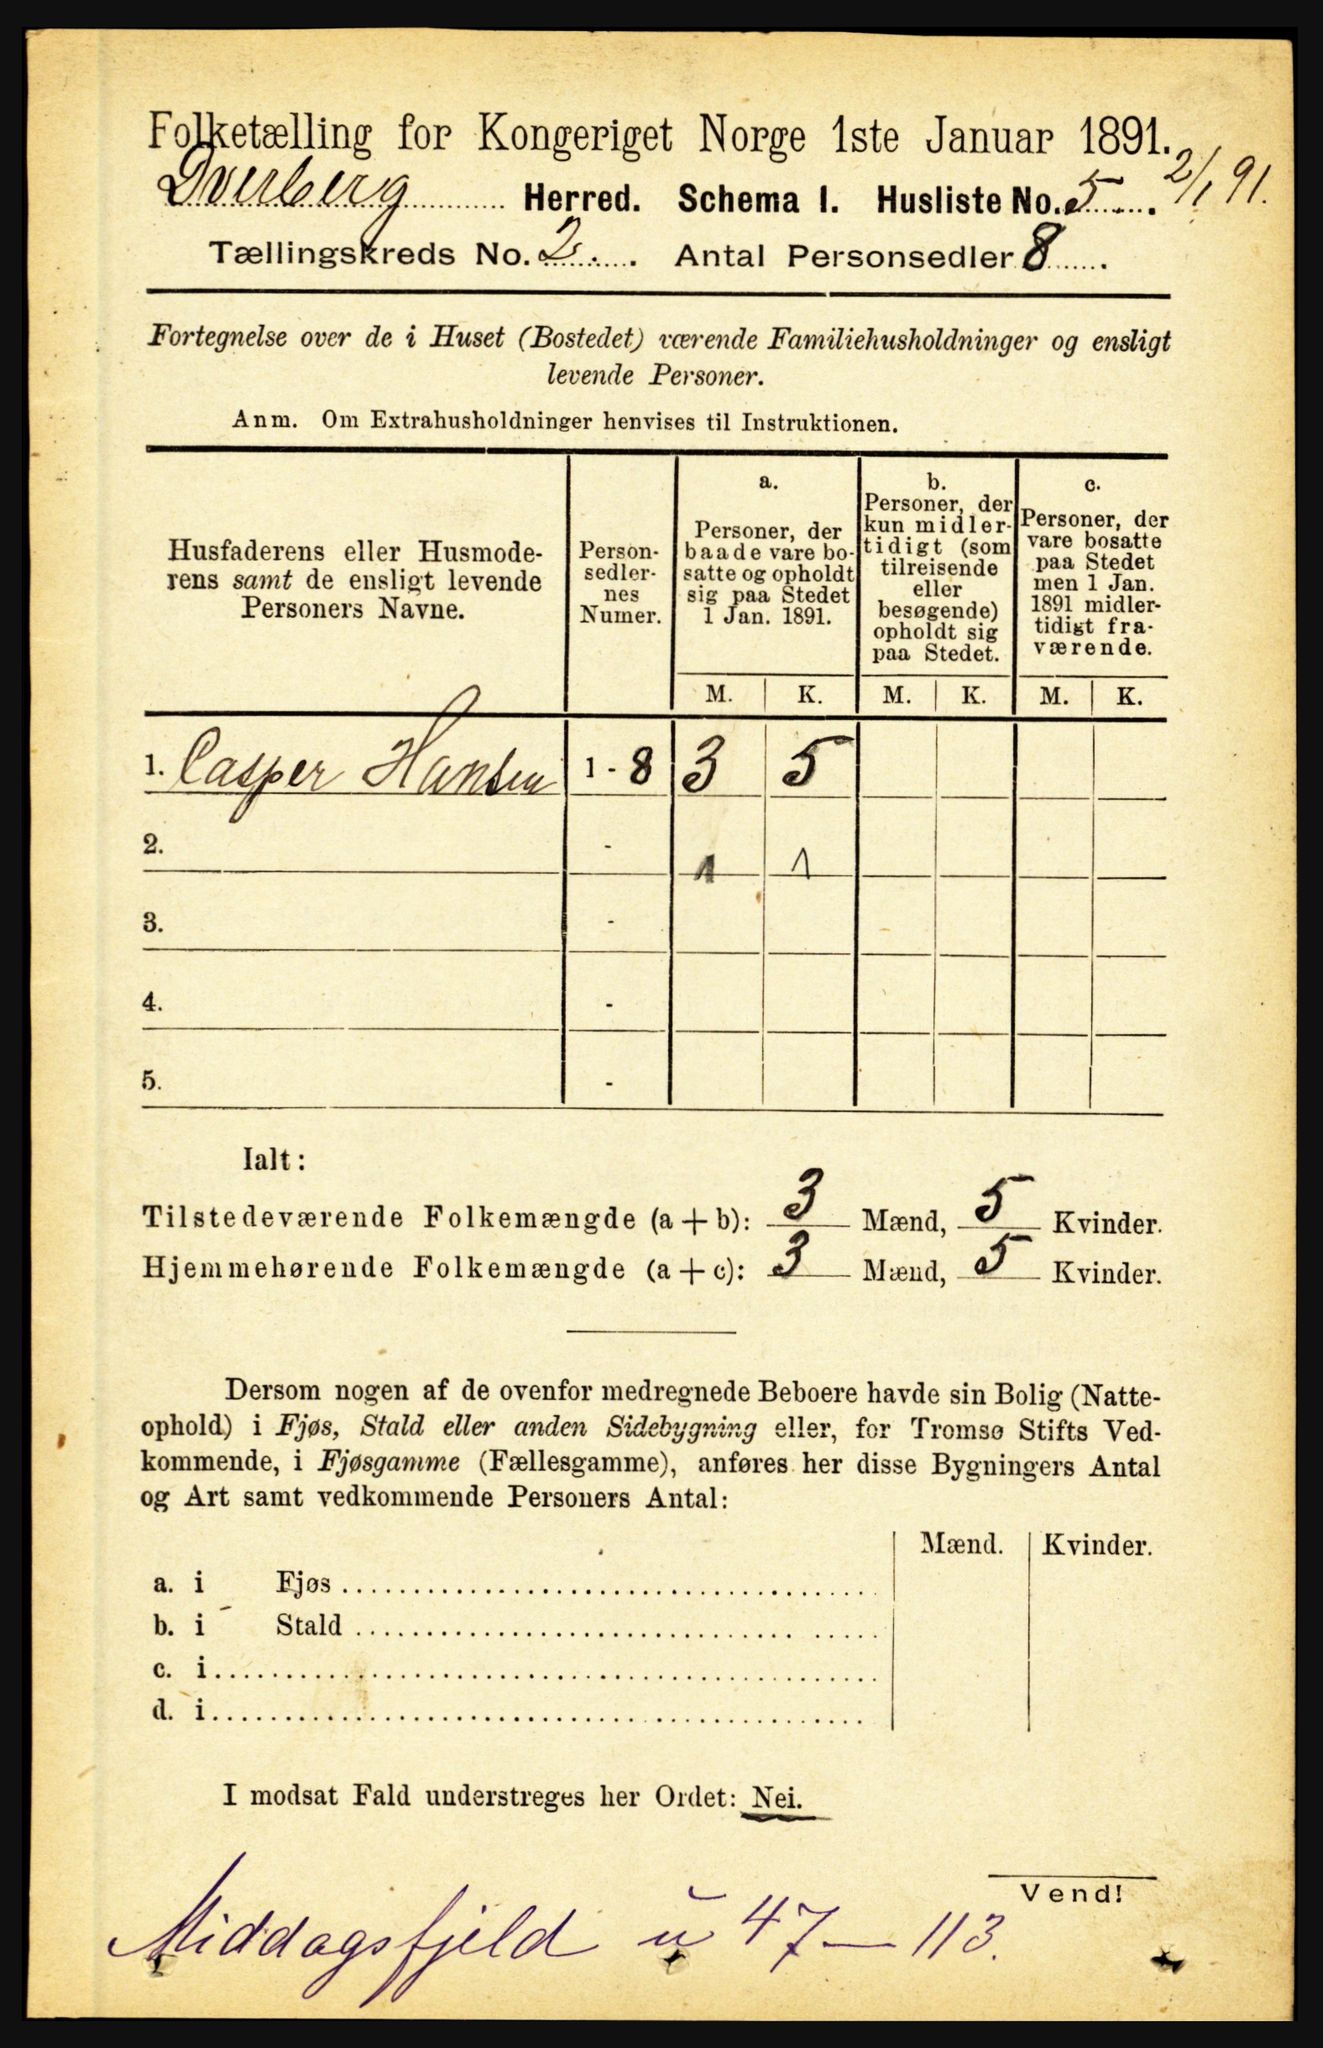 Folketælling for Kongeriget Norge 1ste Januar 1891.
Dverberg Herred. Schema I. Husliste No. 5. 2/1 91.
Tællingskreds No. 2. Antal Personsedler 8.
Fortegnelse over de i Huset (Bostedet) værende Familiehusholdninger og ensligt
levende Personer.
Anm. Om Extrahusholdninger henvises til Instruktionen.
Husfaderens eller Husmode-
rens samt de ensligt levende
Personers Navne.
Person-
sedler-
nes
Numer.
a.
Personer, der
baade vare bo-
satte og opholdt
sig paa Stedet
1 Jan. 1891.
b.
Personer, der
kun midler-
tidigt (som
tilreisende
eller
besøgende)
opholdt sig
paa Stedet.
c.
Personer, der
vare bosatte
paa Stedet
men 1 Jan.
1891 midler-
tidigt fra-
værende.
M. K. M. K. M. K.
1. Casper Hansen 1 - 8 3 5
2. - 1 1
3. -
4. -
5. -
Ialt:
Tilstedeværende Folkemængde (a + b): 3 Mænd, 5 Kvinder.
Hjemmehørende Folkemængde (a + c): 3 Mænd, 5 Kvinder.
Dersom nogen af de ovenfor medregnede Beboere havde sin Bolig (Natte-
ophold) i Fjøs, Stald eller anden Sidebygning eller, for Tromsø Stifts Ved-
kommende, i Fjøsgamme (Fællesgamme), anføres her disse Bygningers Antal
og Art samt vedkommende Personers Antal:
Mænd. Kvinder.
a. i Fjøs
b. i Stald
c. i
d. i
I modsat Fald understreges her Ordet: Nei.
Vend!
Middagsfjeld u 47 - 113.